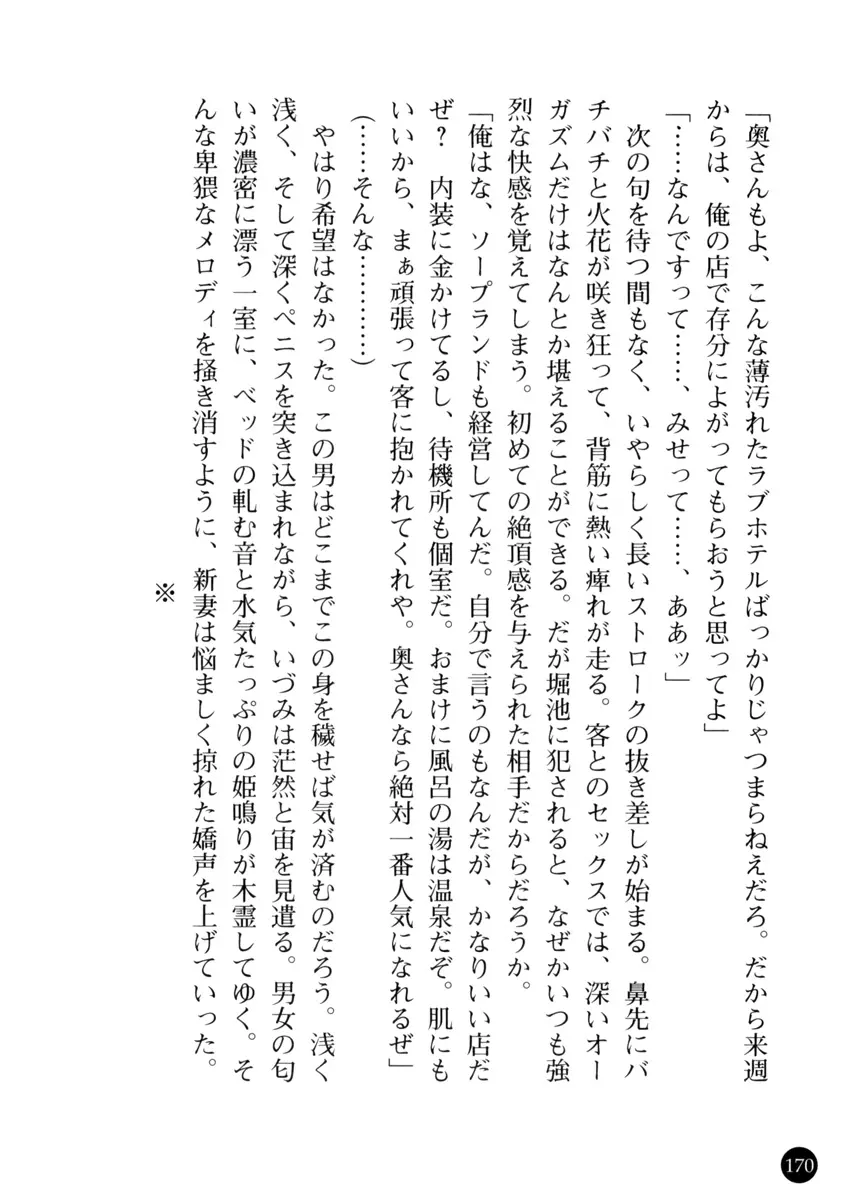 「奥さんもよ、こんな薄汚れたラブホテルばっかりじゃつまらねえだろ。だから来週
からは、俺の店で存分によがってもらおうと思ってよ」
「……なんですって……、みせって……、ああッ」
　次の句を待つ間もなく、いやらしく長いストロークの抜き差しが始まる。鼻先にバ
チバチと火花が咲き狂って、背筋に熱い痺れが走る。客とのセックスでは、深いオー
ガズムだけはなんとか堪えることができる。だが堀池に犯されると、なぜかいつも強
烈な快感を覚えてしまう。初めての絶頂感を与えられた相手だからだろうか。
「俺はな、ソープランドも経営してんだ。自分で言うのもなんだが、かなりいい店だ
ぜ？　内装に金かけてるし、待機所も個室だ。おまけに風呂の湯は温泉だぞ。肌にも
いいから、まぁ頑張って客に抱かれてくれや。奥さんなら絶対一番人気になれるぜ」
（……そんな…………）
　やはり希望はなかった。この男はどこまでこの身を穢せば気が済むのだろう。浅く
浅く、そして深くペニスを突き込まれながら、いづみは茫然と宙を見遣る。男女の匂
いが濃密に漂う一室に、ベッドの軋む音と水気たっぷりの姫鳴りが木霊してゆく。そ
んな卑猥なメロディを掻き消すように、新妻は悩ましく掠れた嬌声を上げていった。
※
170